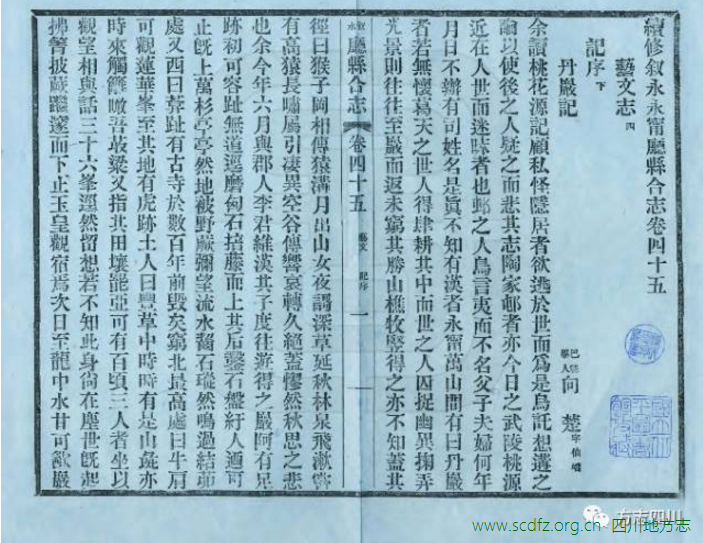 續修敘永永甯廳縣合志卷四十五
藝文志 四
記序 下
丹巖記
巴縣舉人 向 楚 字仙喬
余讀桃花源記顧私怪隱居者欲逃於世而為是烏託想遘之
論以使後之人疑之而悲其志陶家邨者亦今日之武陵桃源
近在人世而迷時者也邨之人鳥言夷面不名父子夫婦何年
月日不辦有司姓名是眞不知有漢者永甯萬山間有曰丹巖
者若無懷葛天之世人得肆耕其中而世之人囚捉幽異掬弄
光景則往往至巖而返未窮其勝山樵牧豎得之亦不知蓋其
敘永廳縣合志 卷四十五 藝文 記序 一
徑曰猴子岡相傳猿溝月出山女夜謌深草延秋林泉飛漱常
有高猿長嘯屬引淒異空谷傳響哀轉久絕蓋慘然秋思之悲
也余今年六月與郡人李君維漢其子度往遊得之巖阿有足
跡初可容趾無道邐磨匈石掊藤而上其后鑿石盤紆人迺可
止旣上萬杉亭亭然地被野蕨彌望流水齧石瑽然鳴過結茆
處又西曰葦趾有古寺於數百年前毀矣窮北最高處曰牛肩
可觀蓮華峯至其地有虎跡土人曰豐草中時時有是山彘亦
時來觸雛噉吾菽粱又指其田壤龍亞可有百頃三人者坐以
觀望相與話三十六峯逕然留想若不知此身尙在塵世旣起
拂箐披蕨躡邃而下止玉皇觀宿焉次日至龍中水甘可歃巖
方志四川
www.scdfz.org.cn 四川地方志